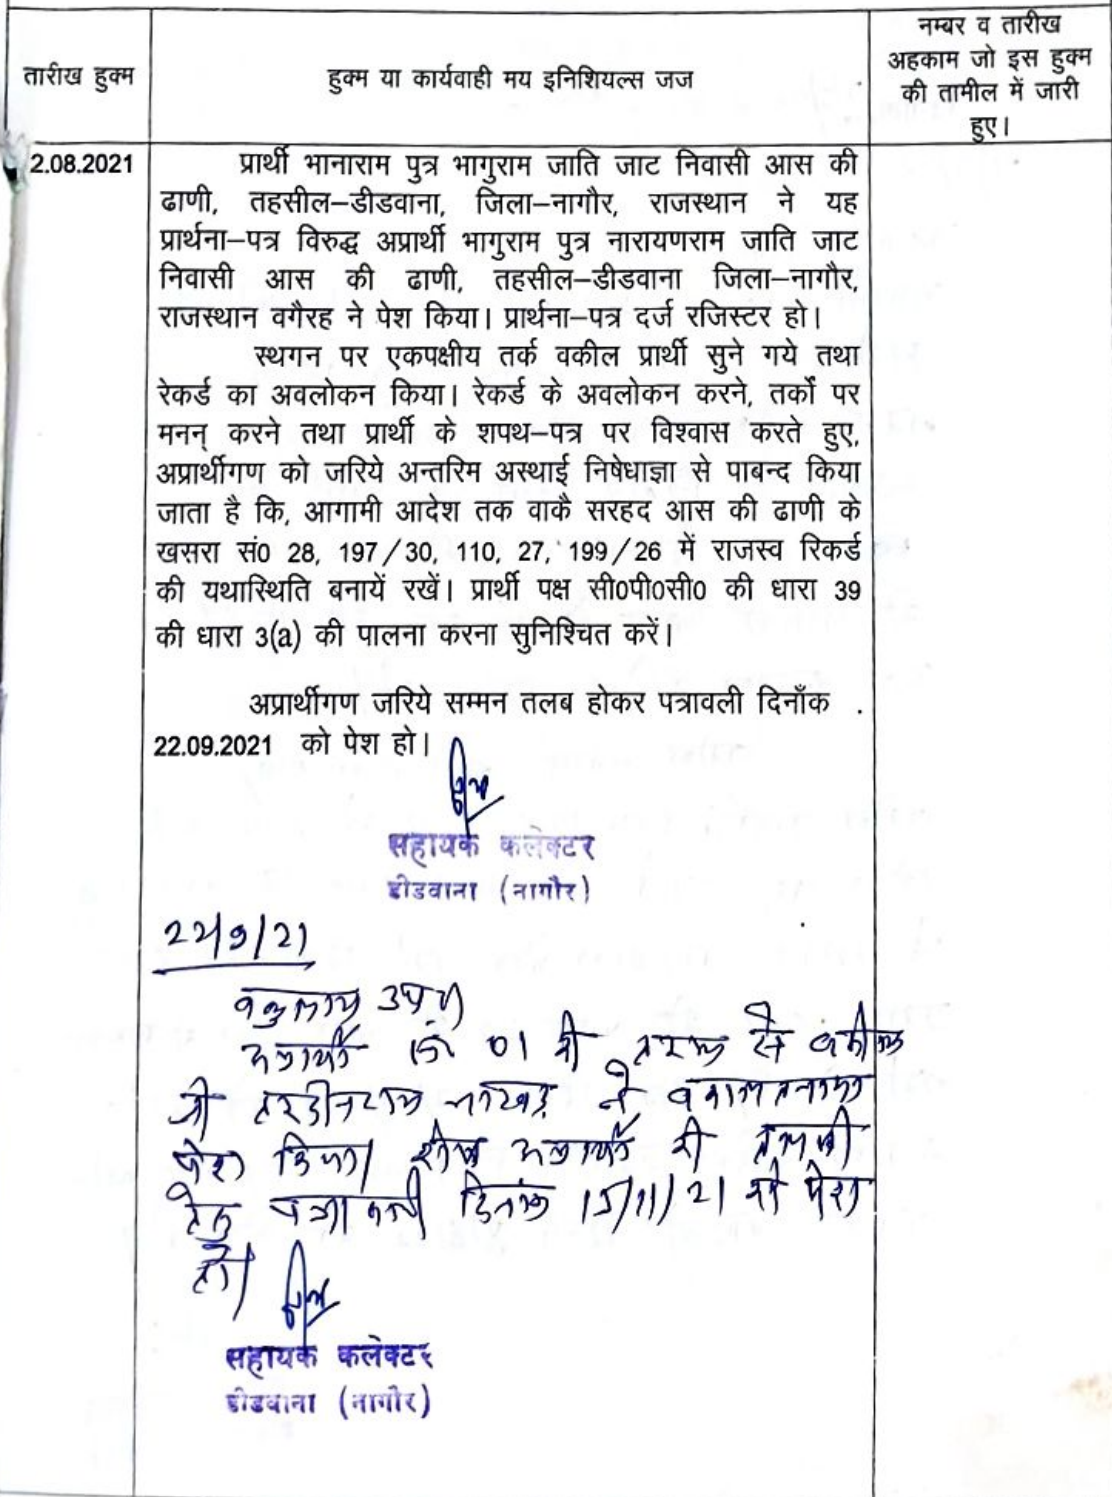 तारीख हुक्म
हुक्म या कार्यवाही मय इनिशियल्स जज
नम्बर व तारीख
अहकाम जो इस हुक्म
की तामील में जारी
हुए।
2.08.2021
प्रार्थी भानाराम पुत्र भागुराम जाति जाट निवासी आस की
ढाणी, तहसील–डीडवाना, जिला–नागौर, राजस्थान ने यह
प्रार्थना–पत्र विरुद्ध अप्रार्थी भागुराम पुत्र नारायणराम जाति जाट
निवासी आस की ढाणी, तहसील–डीडवाना जिला–नागौर,
राजस्थान वगैरह ने पेश किया। प्रार्थना–पत्र दर्ज रजिस्टर हो।
स्थगन पर एकपक्षीय तर्क वकील प्रार्थी सुने गये तथा
रेकर्ड का अवलोकन किया। रेकर्ड के अवलोकन करने, तर्कों पर
मनन् करने तथा प्रार्थी के शपथ–पत्र पर विश्वास करते हुए,
अप्रार्थीगण को जरिये अन्तरिम अस्थाई निषेधाज्ञा से पाबन्द किया
जाता है कि, आगामी आदेश तक वाकै सरहद आस की ढाणी के
खसरा सं0 28, 197/30, 110, 27, 199/26 में राजस्व रिकर्ड
की यथास्थिति बनायें रखें। प्रार्थी पक्ष सी0पी0सी0 की धारा 39
की धारा 3(a) की पालना करना सुनिश्चित करें।
अप्रार्थीगण जरिये सम्मन तलब होकर पत्रावली दिनाँक
22.09.2021 को पेश हो।
सहायक कलेक्टर
डीडवाना (नागौर)
22/9/21
अप्रार्थी 01 की तरफ से वकील
श्री ने वकालतनामा
पेश किया। शेष अप्रार्थी की तामली
हेतु पत्रावली दिनांक 15/11/21 को पेश
हो।
सहायक कलेक्टर
डीडवाना (नागौर)